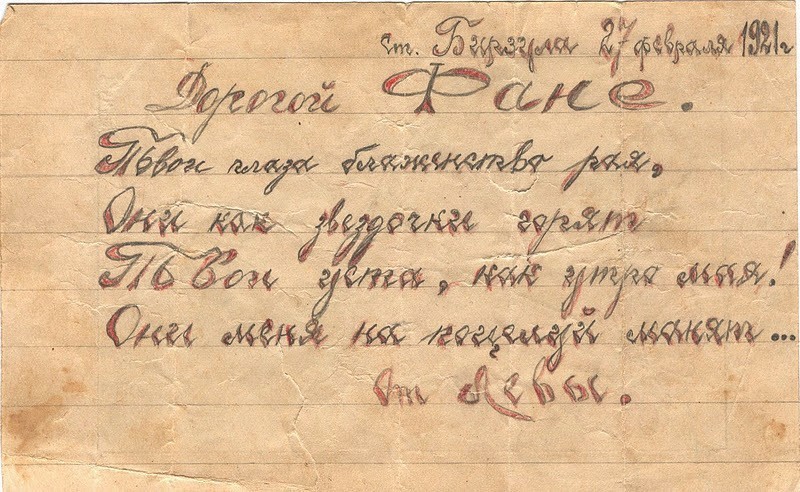 ст. Бирзула 27 февраля 1921 г
Дорогой Фане.
Твои глаза блаженство рая,
Они как звездочки горят
Твои уста, как утро мая!
Они меня на поцелуй манят...
От Левы.